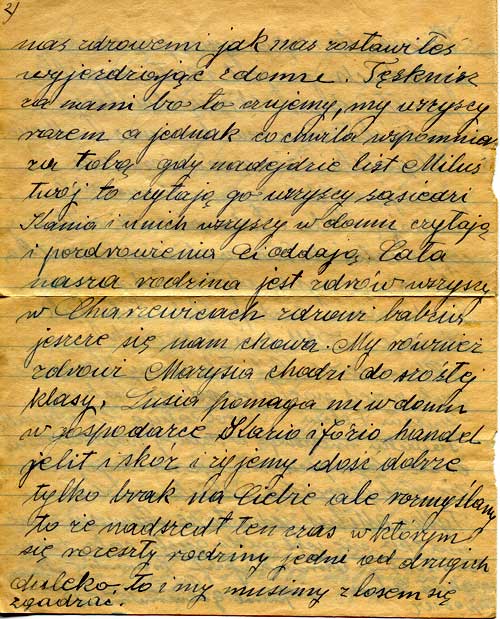 2)
nas zdrowemi jak nas zostawiłeś
wyjeżdżając z domu. Tęsknisz
za nami bo to czujemy, my wszyscy
razem a jednak co chwila wspomnia
za tobą gdy nadejdzie list Miluś
twój to czytają go wszyscy sąsiedzi
Kania i unich wszyscy w domu czytają
i pozdrowienia Ci oddają. Cała
nasza rodzina jest zdrów wszyscy
w zdrowi babcia
jeszcze się nam chowa. My również
zdrowi Marysia chodzi do szóstej
klasy, Lusia pomaga mi w domu
w gospodarce i Józio handel
jelit i skor i żyjemy dosć dobrze
tylko brak na Ciebie ale rozmyślamy
to że nadszedł ten czas w którym
się rozeszły rodziny jedni od drugich
daleko. to i my musimy z losem się
zgadzać.